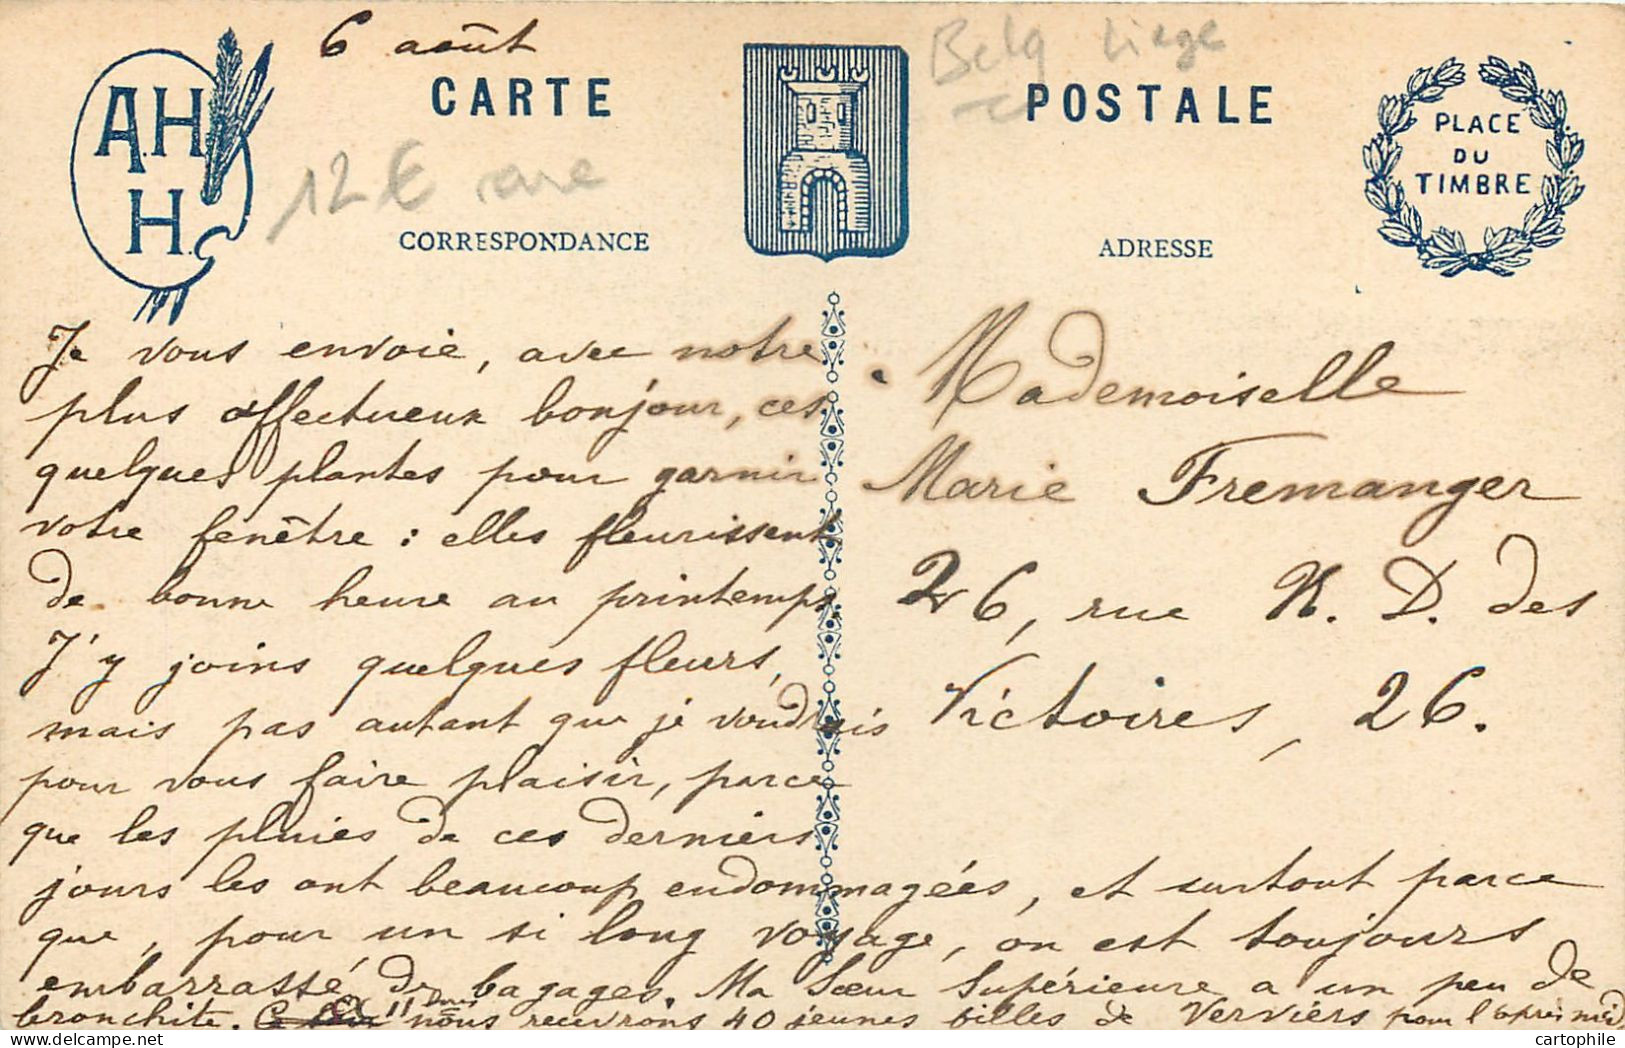 6 août
A.H
H.
CARTE POSTALE
Belg Liege
12 € rare
CORRESPONDANCE
ADRESSE
PLACE
DU
TIMBRE
Je vous envoie, avec notre
plus affectueux bonjour, ces
quelques plantes pour garnir
votre fenêtre : elles fleurissent
de bonne heure au printemps.
J'y joins quelques fleurs,
mais pas autant que je voudrais
pour vous faire plaisir, parce
que les pluies de ces derniers
jours les ont beaucoup endommagées, et surtout parce
que, pour un si long voyage, on est toujours
embarrassé de bagages. Ma Sœur Supérieure a un peu de
bronchite. nous recevrons 40 jeunes filles de Verviers pour l'après mid
Mademoiselle
Marie Fremanger
26, rue N. D. des
Victoires, 26.
cartophile.com